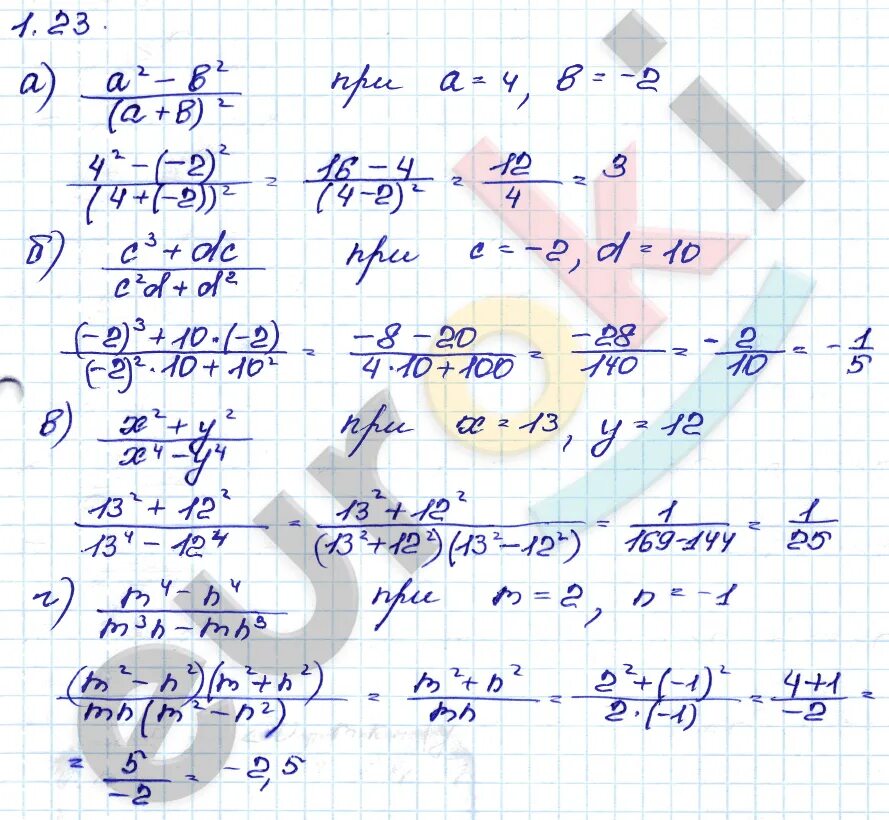 1.23.
а) (a² − b²)/(a + b)² при a = 4, b = −2
(4² − (−2)²)/(4 + (−2))² = (16 − 4)/(4 − 2)² = 12/4 = 3
б) (c³ + dc)/(c²d + d²) при c = −2, d = 10
((−2)³ + 10·(−2))/((−2)²·10 + 10²) = (−8 − 20)/(4·10 + 100) = −28/140 = −2/10 = −1/5
в) (x² + y²)/(x⁴ − y⁴) при x = 13, y = 12
(13² + 12²)/(13⁴ − 12⁴) = (13² + 12²)/((13² + 12²)(13² − 12²)) = 1/(169 − 144) = 1/25
г) (m⁴ − n⁴)/(m³n − mn³) при m = 2, n = −1
((m² − n²)(m² + n²))/(mn(m² − n²)) = (m² + n²)/(mn) = (2² + (−1)²)/(2·(−1)) = (4 + 1)/(−2) =
= 5/(−2) = −2,5
euroki